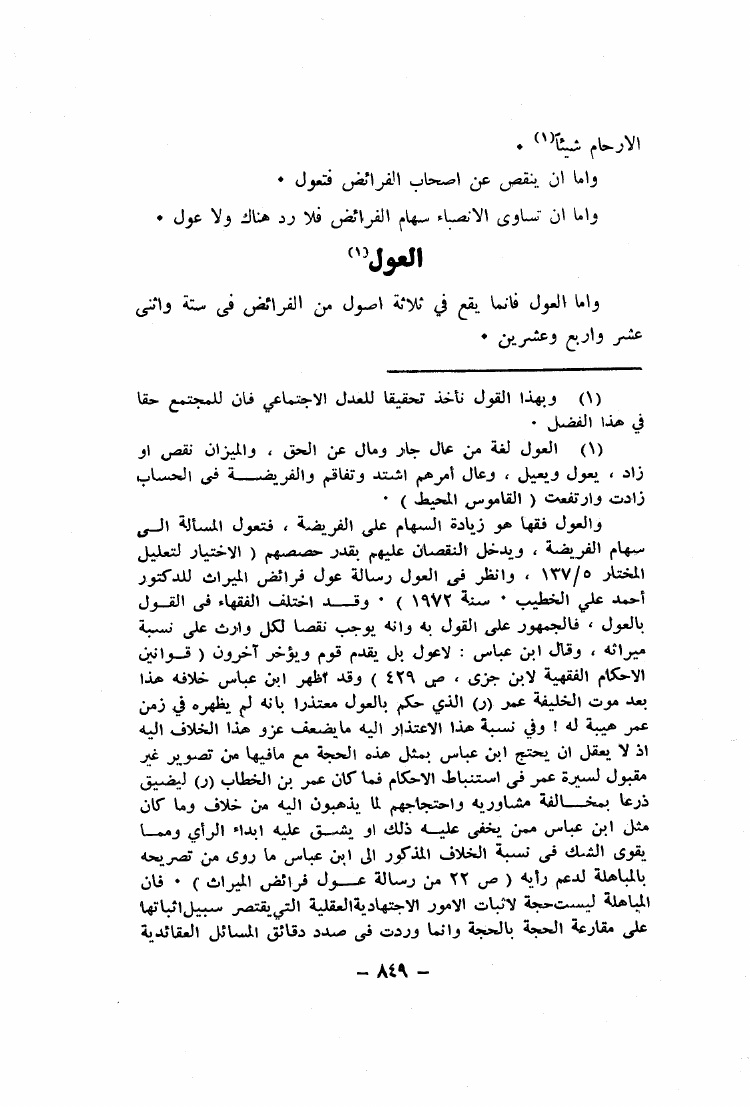 الارحام شيئاً(١) ٠
واما ان ينقص عن اصحاب الفرائض فتعول ٠
واما ان تساوى الانصباء سهام الفرائض فلا رد هناك ولا عول ٠
العول(١)
واما العول فانما يقع في ثلاثة اصول من الفرائض فى ستة واثنى
عشر واربع وعشرين ٠
(١) وبهذا القول نأخذ تحقيقا للعدل الاجتماعي فان للمجتمع حقا
في هذا الفضل ٠
(١) العول لغة من عال جار ومال عن الحق ، والميزان نقص او
زاد ، يعول ويعيل ، وعال أمرهم اشتد وتفاقم والفريضـــة فى الحساب
زادت وارتفعت ( القاموس المحيط ) ٠
والعول فقها هو زيادة السهام على الفريضة ، فتعول المسألة الـى
سهام الفريضة ، ويدخل النقصان عليهم بقدر حصصهم ( الاختيار لتعليل
المختار ١٣٧/٥ ، وانظر فى العول رسالة عول فرائض الميراث للدكتور
أحمد علي الخطيب ٠ سنة ١٩٧٢ ) ٠ وقـــد اختلف الفقهاء فى القـول
بالعول ، فالجمهور على القول به وانه يوجب نقصا لكل وارث على نسبة
ميراثه ، وقال ابن عباس : لاعول بل يقدم قوم ويؤخر آخرون ( قـوانين
الاحكام الفقهية لابن جزى ، ص ٤٢٩ ) وقد اظهر ابن عباس خلافه هذا
بعد موت الخليفة عمر (ر) الذي حكم بالعول معتذرا بانه لم يظهره في زمن
عمر هيبة له ! وفي نسبة هذا الاعتذار اليه مايضعف عزو هذا الخلاف اليه
اذ لا يعقل ان يحتج ابن عباس بمثل هذه الحجة مع مافيها من تصوير غير
مقبول لسيرة عمر فى استنباط الاحكام فما كان عمر بن الخطاب (ر) ليضيق
ذرعا بمخـــالفة مشاوريه واحتجاجهم لما يذهبون اليه من خلاف وما كان
مثل ابن عباس ممن يخفى عليـــه ذلك او يشـــق عليه ابداء الرأي وممـــا
يقوى الشك فى نسبة الخلاف المذكور الى ابن عباس ما روى من تصريحه
بالمباهلة لدعم رأيه ( ص ٢٢ من رسالة عـــول فرائض الميراث ) ٠ فان
المباهلة ليست حجة لاثبات الامور الاجتهادية العقلية التي يقتصر سبيل اثباتها
على مقارعة الحجة بالحجة وانما وردت فى صدد دقائق المسائل العقائدية
– ٨٤٩ –